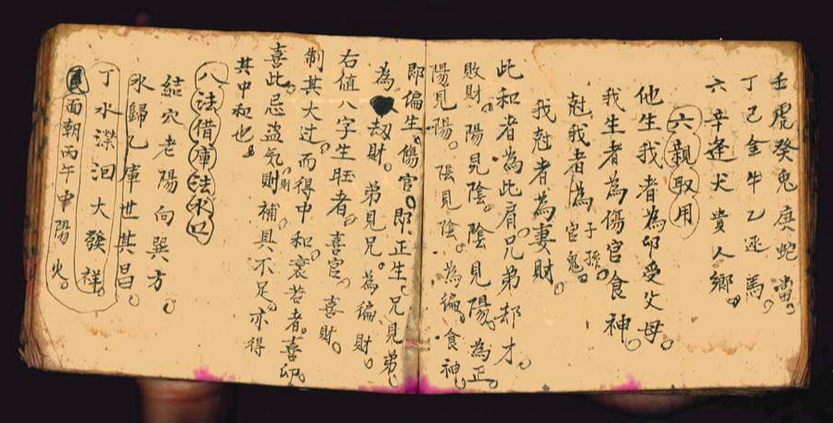 壬虎癸兔庚蛇當
丁己金牛乙逐馬
六辛逢犬貴人鄉
六親取用
他生我者為卬受父母
我生者為傷官食神
尅我者為子孫官鬼
我尅者為妻財
此和者為此肩兄弟却才
敗財陽見陰陰見陽為正
陽見陽陰見陰為偏食神
即偏生傷官即正生兄見弟
為刼財弟見兄為偏財
右值八字生旺者喜官喜財
制其大过而得中和衰若者喜卬
喜此忌盗気則補具不足亦得
其中和也
八法借庫法水口
結穴老陽向巽方
水歸乙庫世其昌
丁水潔洄大發祥
面朝丙午中陽火